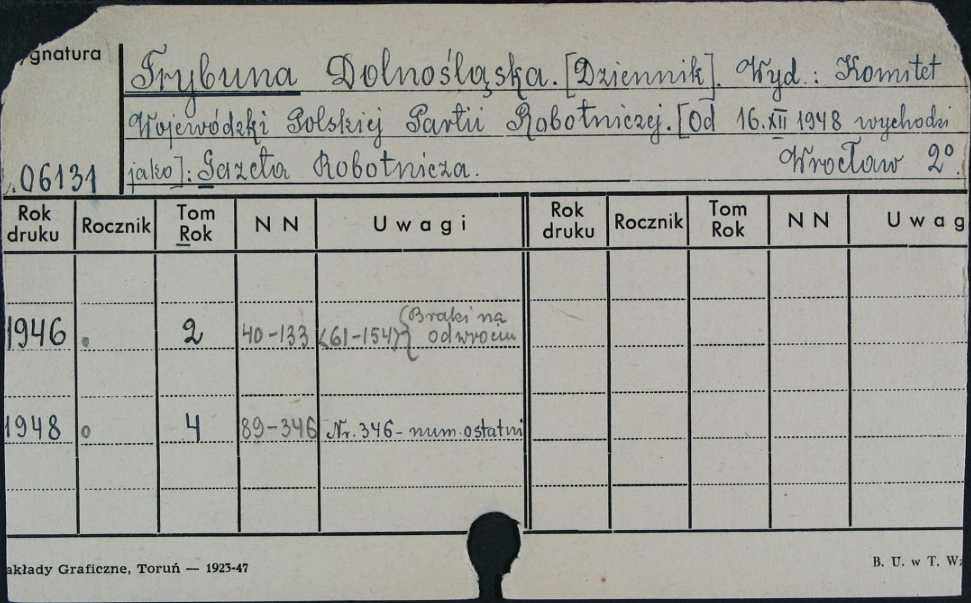 ygnatura
Trybuna Dolnośląska. [Dziennik]. Wyd.: Komitet
Wojewódzki Polskiej Partii Robotniczej. [Od 16.XII 1948 wychodzi
jako]: Gazeta Robotnicza. Wrocław 2°.
06131
Rok druku Rocznik Tom Rok N N Uwagi Rok druku Rocznik Tom Rok N N Uwag
1946 2 40-133 (61-154) (Braki na odwrociu
1948 4 89-346 Nr. 346 - num. ostatni
akłady Graficzne, Toruń — 1923-47 B. U. w T. Wz